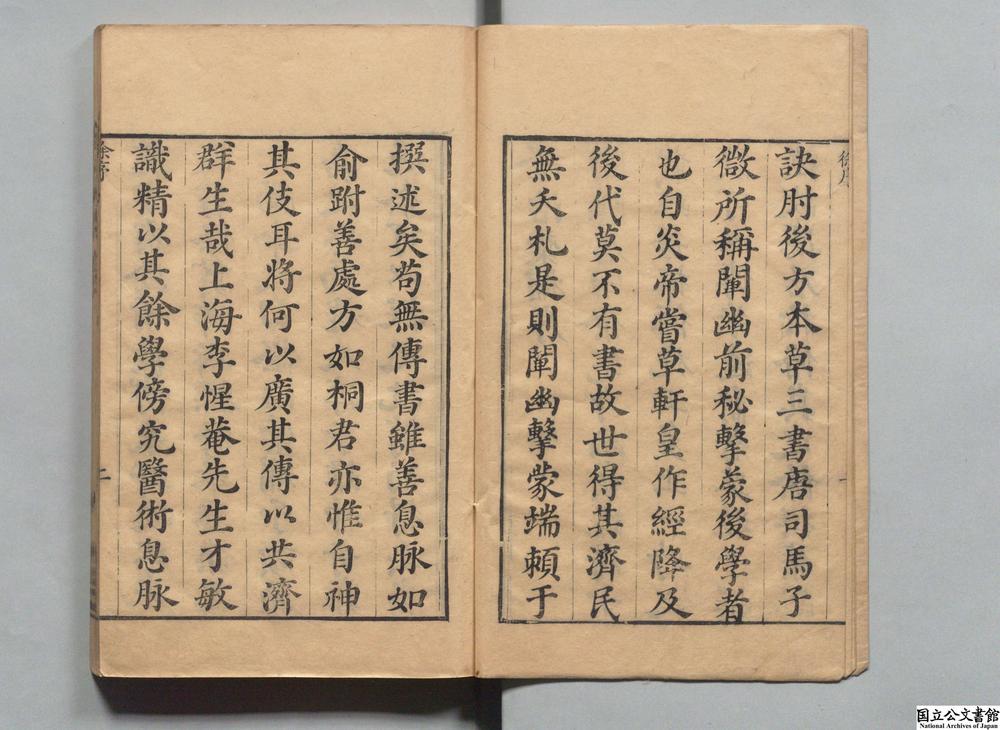 訣肘後方本草三書唐司馬子
微所稱闡幽前秘擊蒙後學者
也自炎帝嘗草軒皇作經降及
後代莫不有書故世得其濟民
無夭札是則闡幽擊蒙端頼于
撰述矣苟無傳書雖善息脉如
俞跗善處方如桐君亦惟自神
其伎耳將何以廣其傳以共濟
群生哉上海李惺菴先生才敏
識精以其餘學傍究醫術息脉
二
国立公文書館
National Archives of Japan